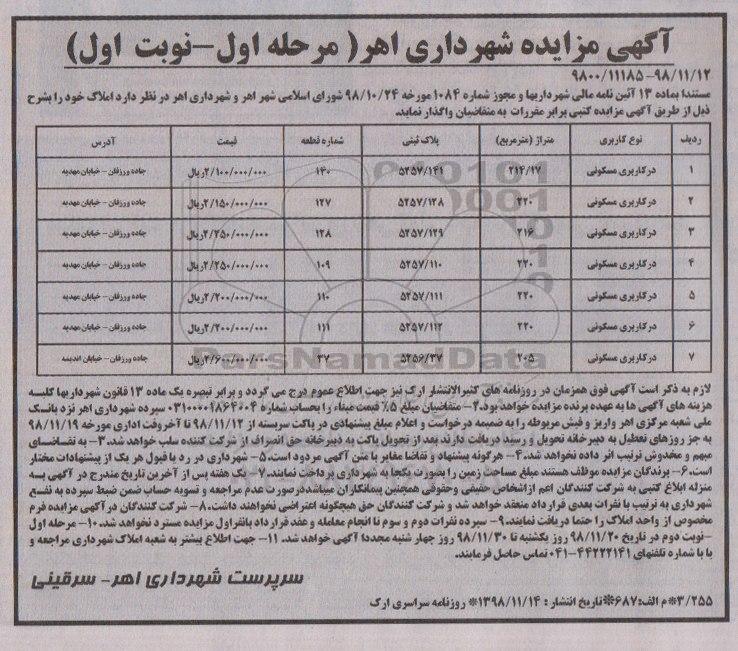 آگهی مزایده شهرداری اهر( مرحله اول-نوبت اول)
۹۸۰۰/۱۱۱۸۵-۹۸/۱۱/۱۲
مستندا بماده ۱۳ آئین نامه مالی شهرداریها و مجوز شماره ۱۰۸۴ مورخه ۹۸/۱۰/۲۴ شورای اسلامی شهر اهر و شهرداری اهر در نظر دارد املاک خود را بشرح
ذیل از طریق آگهی مزایده کتبی برابر مقررات به متقاضیان واگذار نماید.
ردیف نوع کاربری متراژ (مترمربع) پلاک ثبتی شماره قطعه قیمت آدرس
۱ درکاربری مسکونی ۲۱۴/۱۷ ۵۲۵۷/۱۴۱ ۱۴۰ ۲/۱۰۰/۰۰۰/۰۰۰ریال جاده ورزقان - خیابان مهدیه
۲ درکاربری مسکونی ۲۲۰ ۵۲۵۷/۱۲۸ ۱۲۷ ۲/۱۵۰/۰۰۰/۰۰۰ریال جاده ورزقان - خیابان مهدیه
۳ درکاربری مسکونی ۲۱۶ ۵۲۵۷/۱۲۹ ۱۲۸ ۲/۲۵۰/۰۰۰/۰۰۰ریال جاده ورزقان - خیابان مهدیه
۴ درکاربری مسکونی ۲۲۰ ۵۲۵۷/۱۱۰ ۱۰۹ ۲/۲۵۰/۰۰۰/۰۰۰ریال جاده ورزقان - خیابان مهدیه
۵ درکاربری مسکونی ۲۲۰ ۵۲۵۷/۱۱۱ ۱۱۰ ۲/۲۰۰/۰۰۰/۰۰۰ریال جاده ورزقان - خیابان مهدیه
۶ درکاربری مسکونی ۲۲۰ ۵۲۵۷/۱۱۲ ۱۱۱ ۲/۲۰۰/۰۰۰/۰۰۰ریال جاده ورزقان - خیابان مهدیه
۷ درکاربری مسکونی ۲۰۵ ۵۲۵۶/۳۷ ۳۷ ۲/۶۰۰/۰۰۰/۰۰۰ریال جاده ورزقان - خیابان اندیشه
ParsNamadData
لازم به ذکر است آگهی فوق همزمان در روزنامه های کثیرالانتشار ارک نیز جهت اطلاع عموم درج می گردد و برابر تبصره یک ماده ۱۳ قانون شهرداریها کلیه
هزینه های آگهی ها به عهده برنده مزایده خواهد بود.۲- متقاضیان مبلغ ۵٪ قیمت مبناء را بحساب شماره ۰۳۱۰۰۰۰۱۸۶۴۰۰۴ سپرده شهرداری اهر نزد بانک
ملی شعبه مرکزی اهر واریز و فیش مربوطه را به ضمیمه درخواست و اعلام مبلغ پیشنهادی در پاکت سربسته از ۹۸/۱۱/۱۲ تا آخروقت اداری مورخه ۹۸/۱۱/۱۹
به جز روزهای تعطیل به دبیرخانه تحویل و رسید دریافت دارند بعد از تحویل پاکت به دبیرخانه حق انصراف از شرکت کننده سلب خواهد شد.۳- به تقاضای
مبهم و مخدوش ترتیب اثر داده نخواهد شد.۴- هرگونه پیشنهاد و تقاضا مغایر با متن آگهی مردود است.۵- شهرداری در رد یا قبول هر یک از پیشنهادات مختار
است.۶- برندگان مزایده موظف هستند مبلغ مساحت زمین را بصورت یکجا به شهرداری پرداخت نمایند.۷- یک هفته پس از آخرین تاریخ مندرج در آگهی به
منزله ابلاغ کتبی به شرکت کنندگان اعم ازاشخاص حقیقی وحقوقی همچنین پیمانکاران میباشددرصورت عدم مراجعه و تسویه حساب ضمن ضبط سپرده به نفع
شهرداری به ترتیب با نفرات بعدی قرارداد منعقد خواهد شد و شرکت کنندگان حق هیچگونه اعتراضی نخواهند داشت.۸- شرکت کنندگان درآگهی مزایده فرم
مخصوص از واحد املاک را حتما دریافت نمایند.۹- سپرده نفرات دوم و سوم تا انجام معامله و عقد قرارداد بانفراول مزایده مسترد نخواهد شد.۱۰- مرحله اول
-نوبت دوم در تاریخ ۹۸/۱۱/۲۰ روز یکشنبه تا ۹۸/۱۱/۳۰ روز چهار شنبه مجددا آگهی خواهد شد. ۱۱- جهت اطلاع بیشتر به شعبه املاک شهرداری مراجعه و
یا با شماره تلفنهای ۴۴۲۲۲۱۴۱-۰۴۱ تماس حاصل فرمایند.
سرپرست شهرداری اهر- سرقینی
۳/۲۵۵*م الف:۶۸۷*تاریخ انتشار : ۱۳۹۸/۱۱/۱۴* روزنامه سراسری ارک